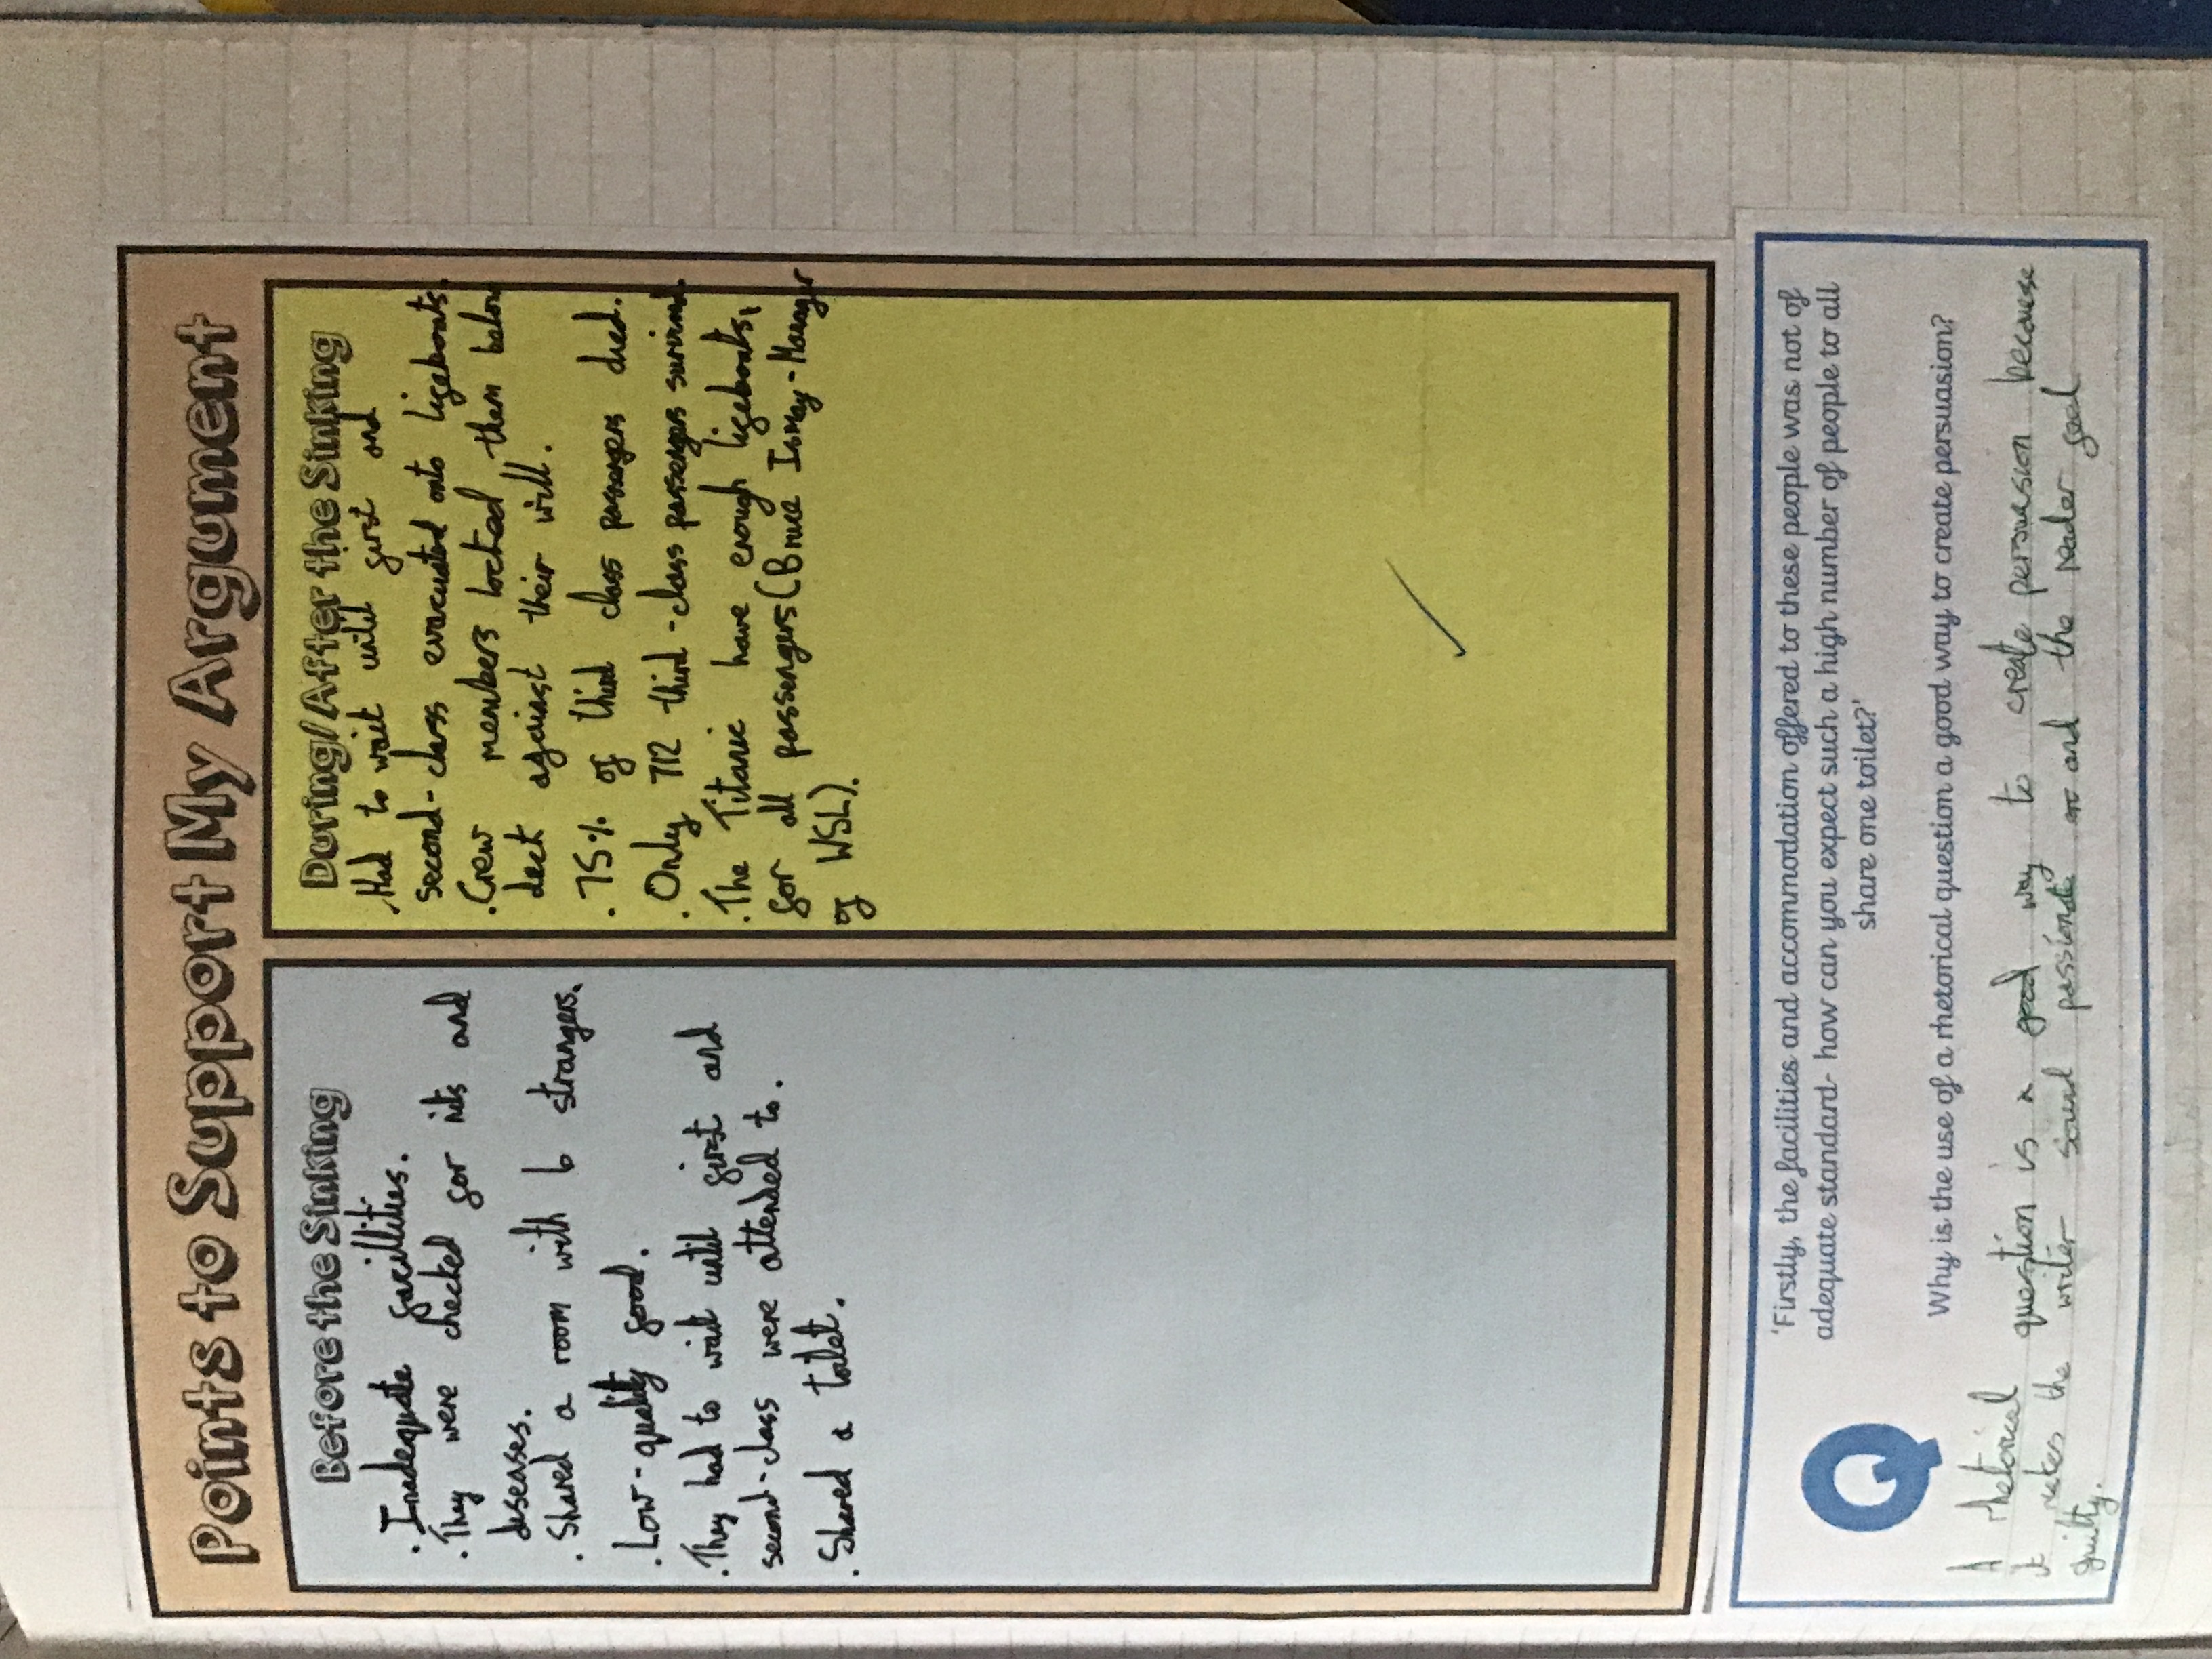 Points to Support My Argument
Before the Sinking
. Inadequate facillities.
. They were checked for nits and
diseases.
. Shared a room with 6 strangers.
. Low-quality food.
. They had to wait until first and
second-class were attended to.
. Shared a toilet.
During/After the Sinking
. Had to wait until first and
second-class evacuated onto lifeboats.
. Crew members locked them below
deck against their will.
. 75% of third class passengers died.
. Only 712 third-class passengers survived.
. The Titanic have enough lifeboats,
for all passengers (Bruce Ismay-Manager
of WSL).
Q
'Firstly, the facilities and accommodation offered to these people was not of
adequate standard- how can you expect such a high number of people to all
share one toilet?'
Why is the use of a rhetorical question a good way to create persuasion?
A rhetorical question is a good way to create persuassion because
it makes the writer sound passionate and the reader feel
guilty.